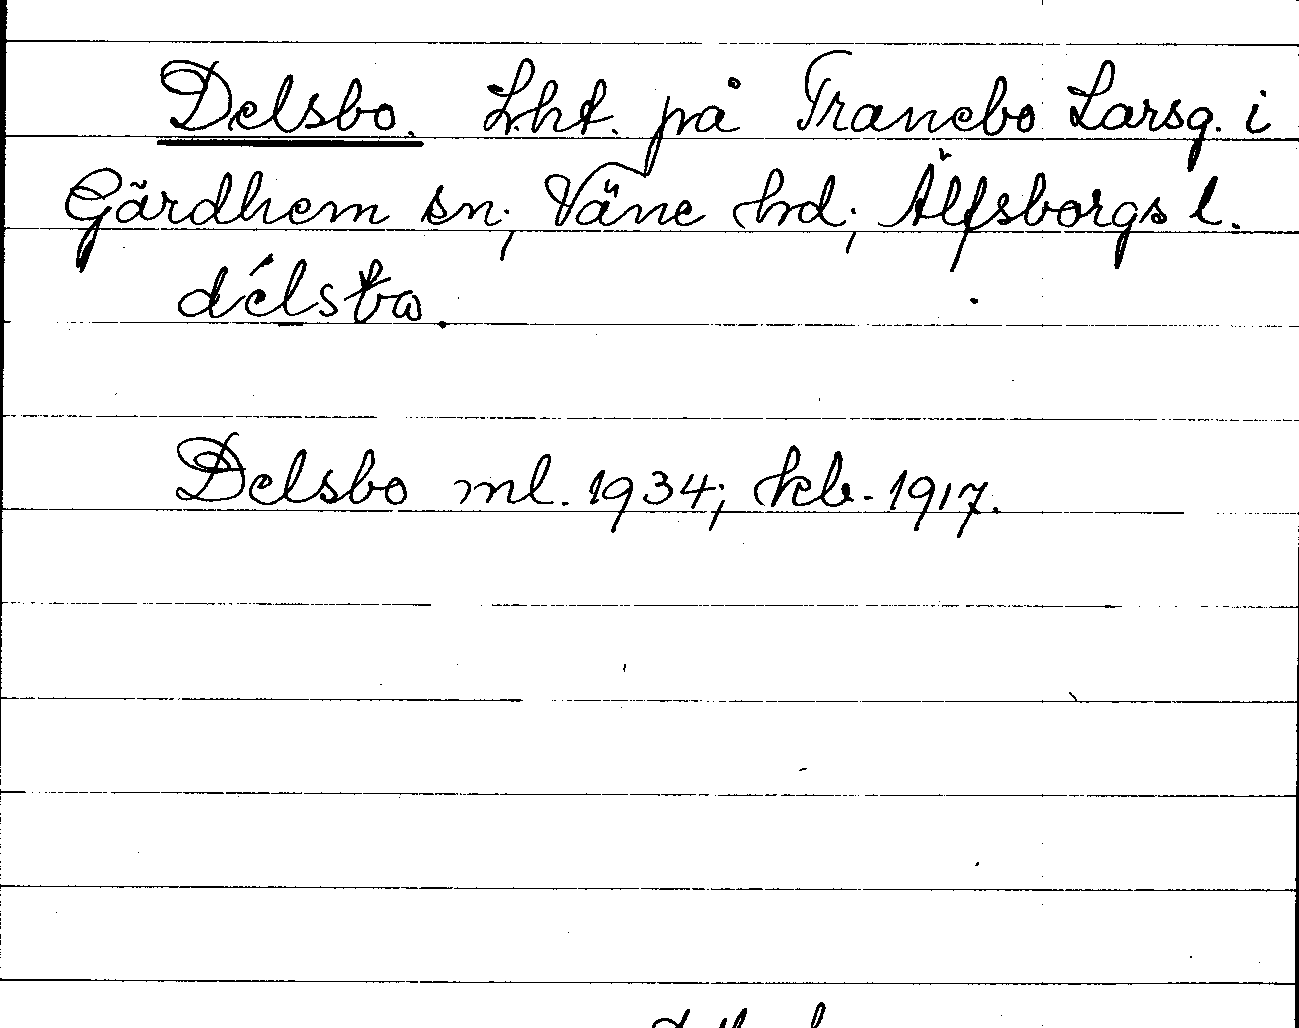 Delsbo. Lht. på Tranebo Larsg. i
Gärdhem sn, Väne hd, Älfsborgs l.
Delsbo ml. 1934; kb. 1917.